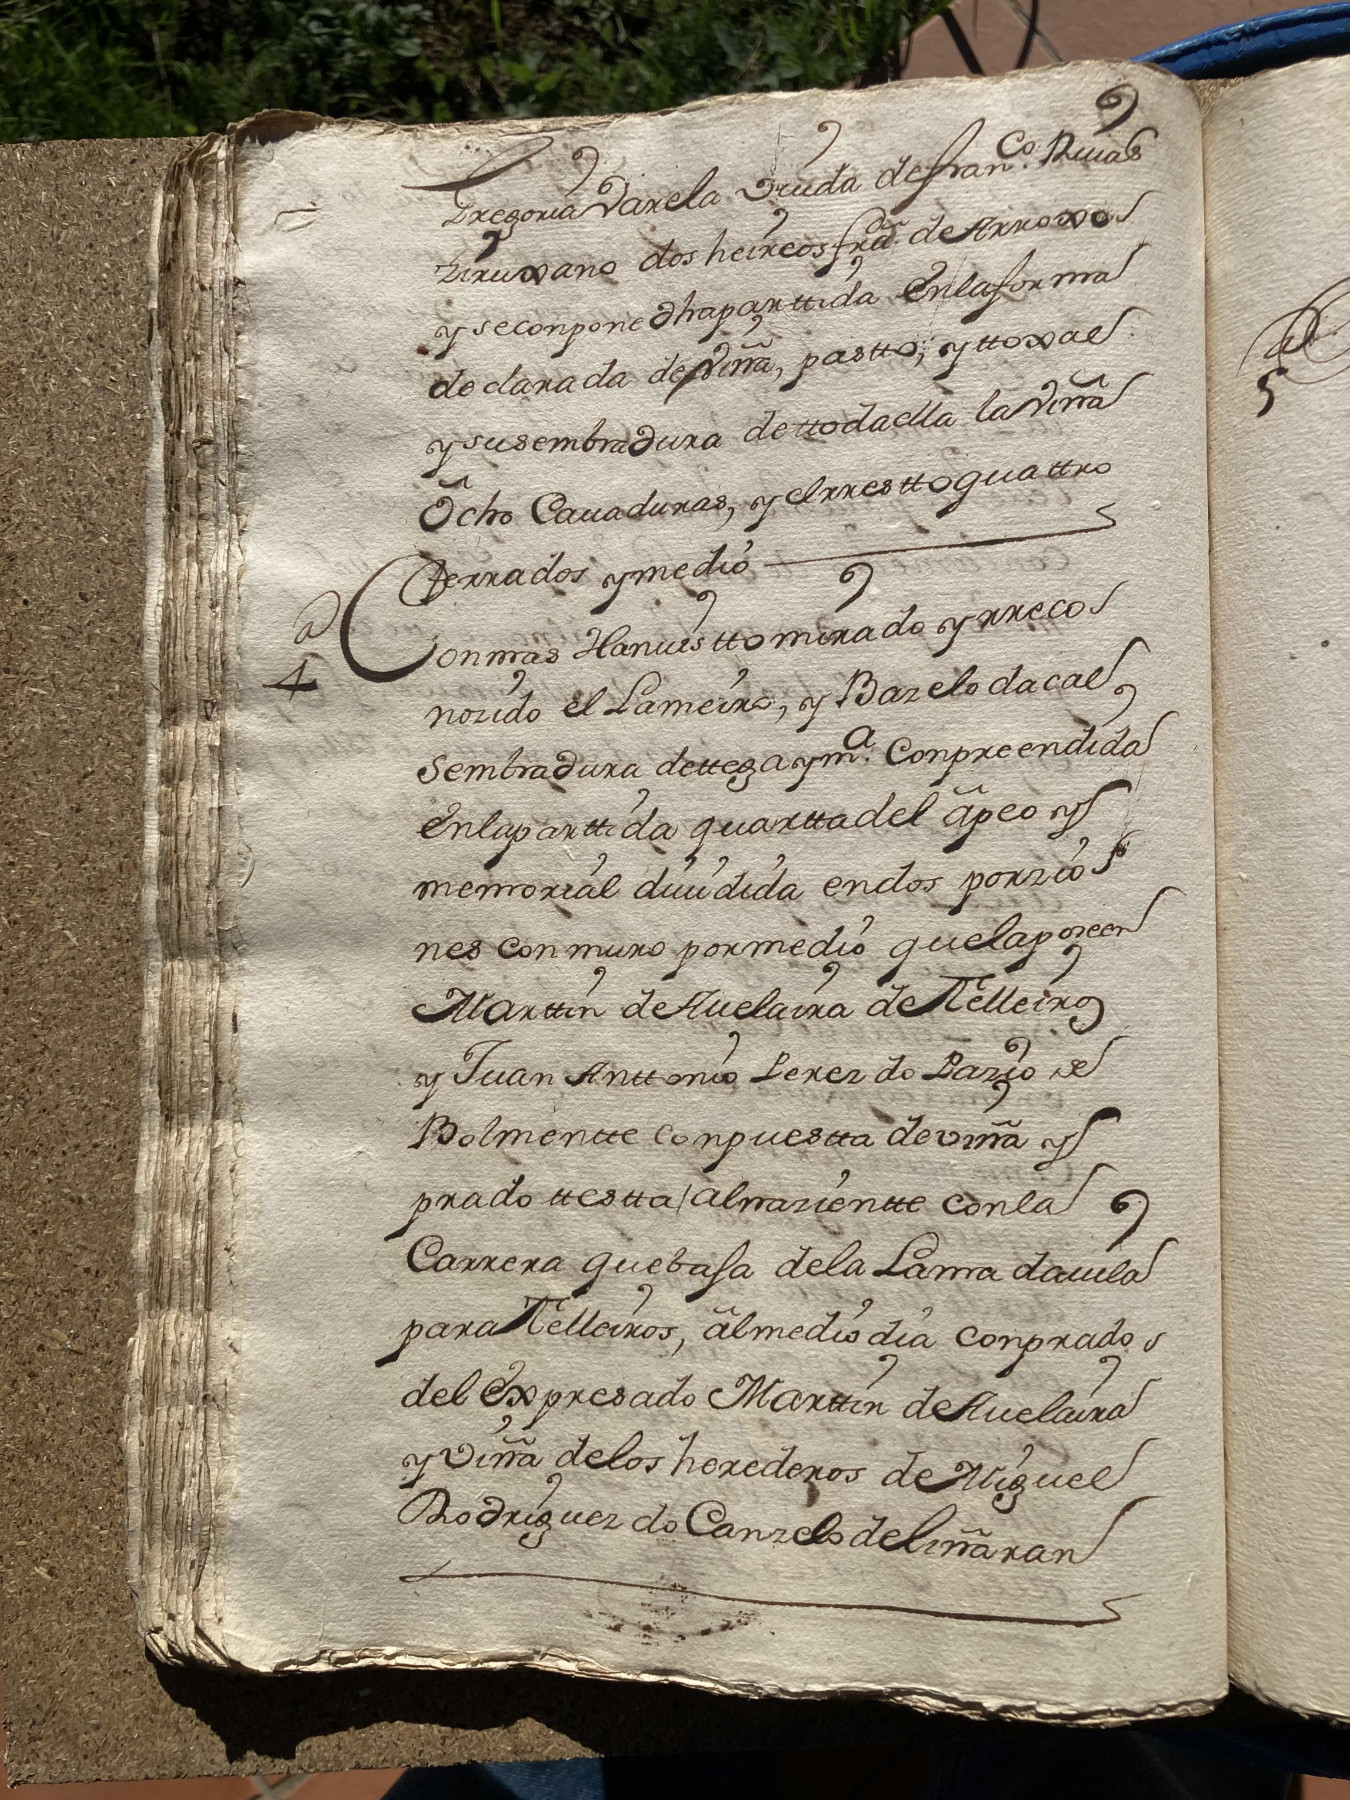 Gregoria Varela Viuda de Franco. Riuas
Ziruxano dos heireos frã. de Arroxo
y seconpone dha parttida Enlaforma
declarada de viña, pastto; y ttoxal
y susembradura dettodaella la viña
Ocho Cauaduras, y elrresttoquattro
ferrados ymedio
a
4
Conmas Hanuistto mirado yrreco
nozido el Lameiro, y Bazelo dacal
Sembradura dettega ymª. Conpreendida
Enlaparttida quarttadel apeo y
memorial diuidida endos porzio
nes con muro pormedio quelaposeen
Marttin de Auelaira de Telleiro
y Juan Anttonio Perez do Pazio se
Bolmentte conpuestta deviña y
prado ttestta / alnazientte conla
Carrera quebasa dela Lama dauila
para Telleiros, almedio dia conprado
del Expresado Marttin de Auelaira
y viña delos herederos de Miguel
Rodriguez do Canzelo deliñaran
a
5